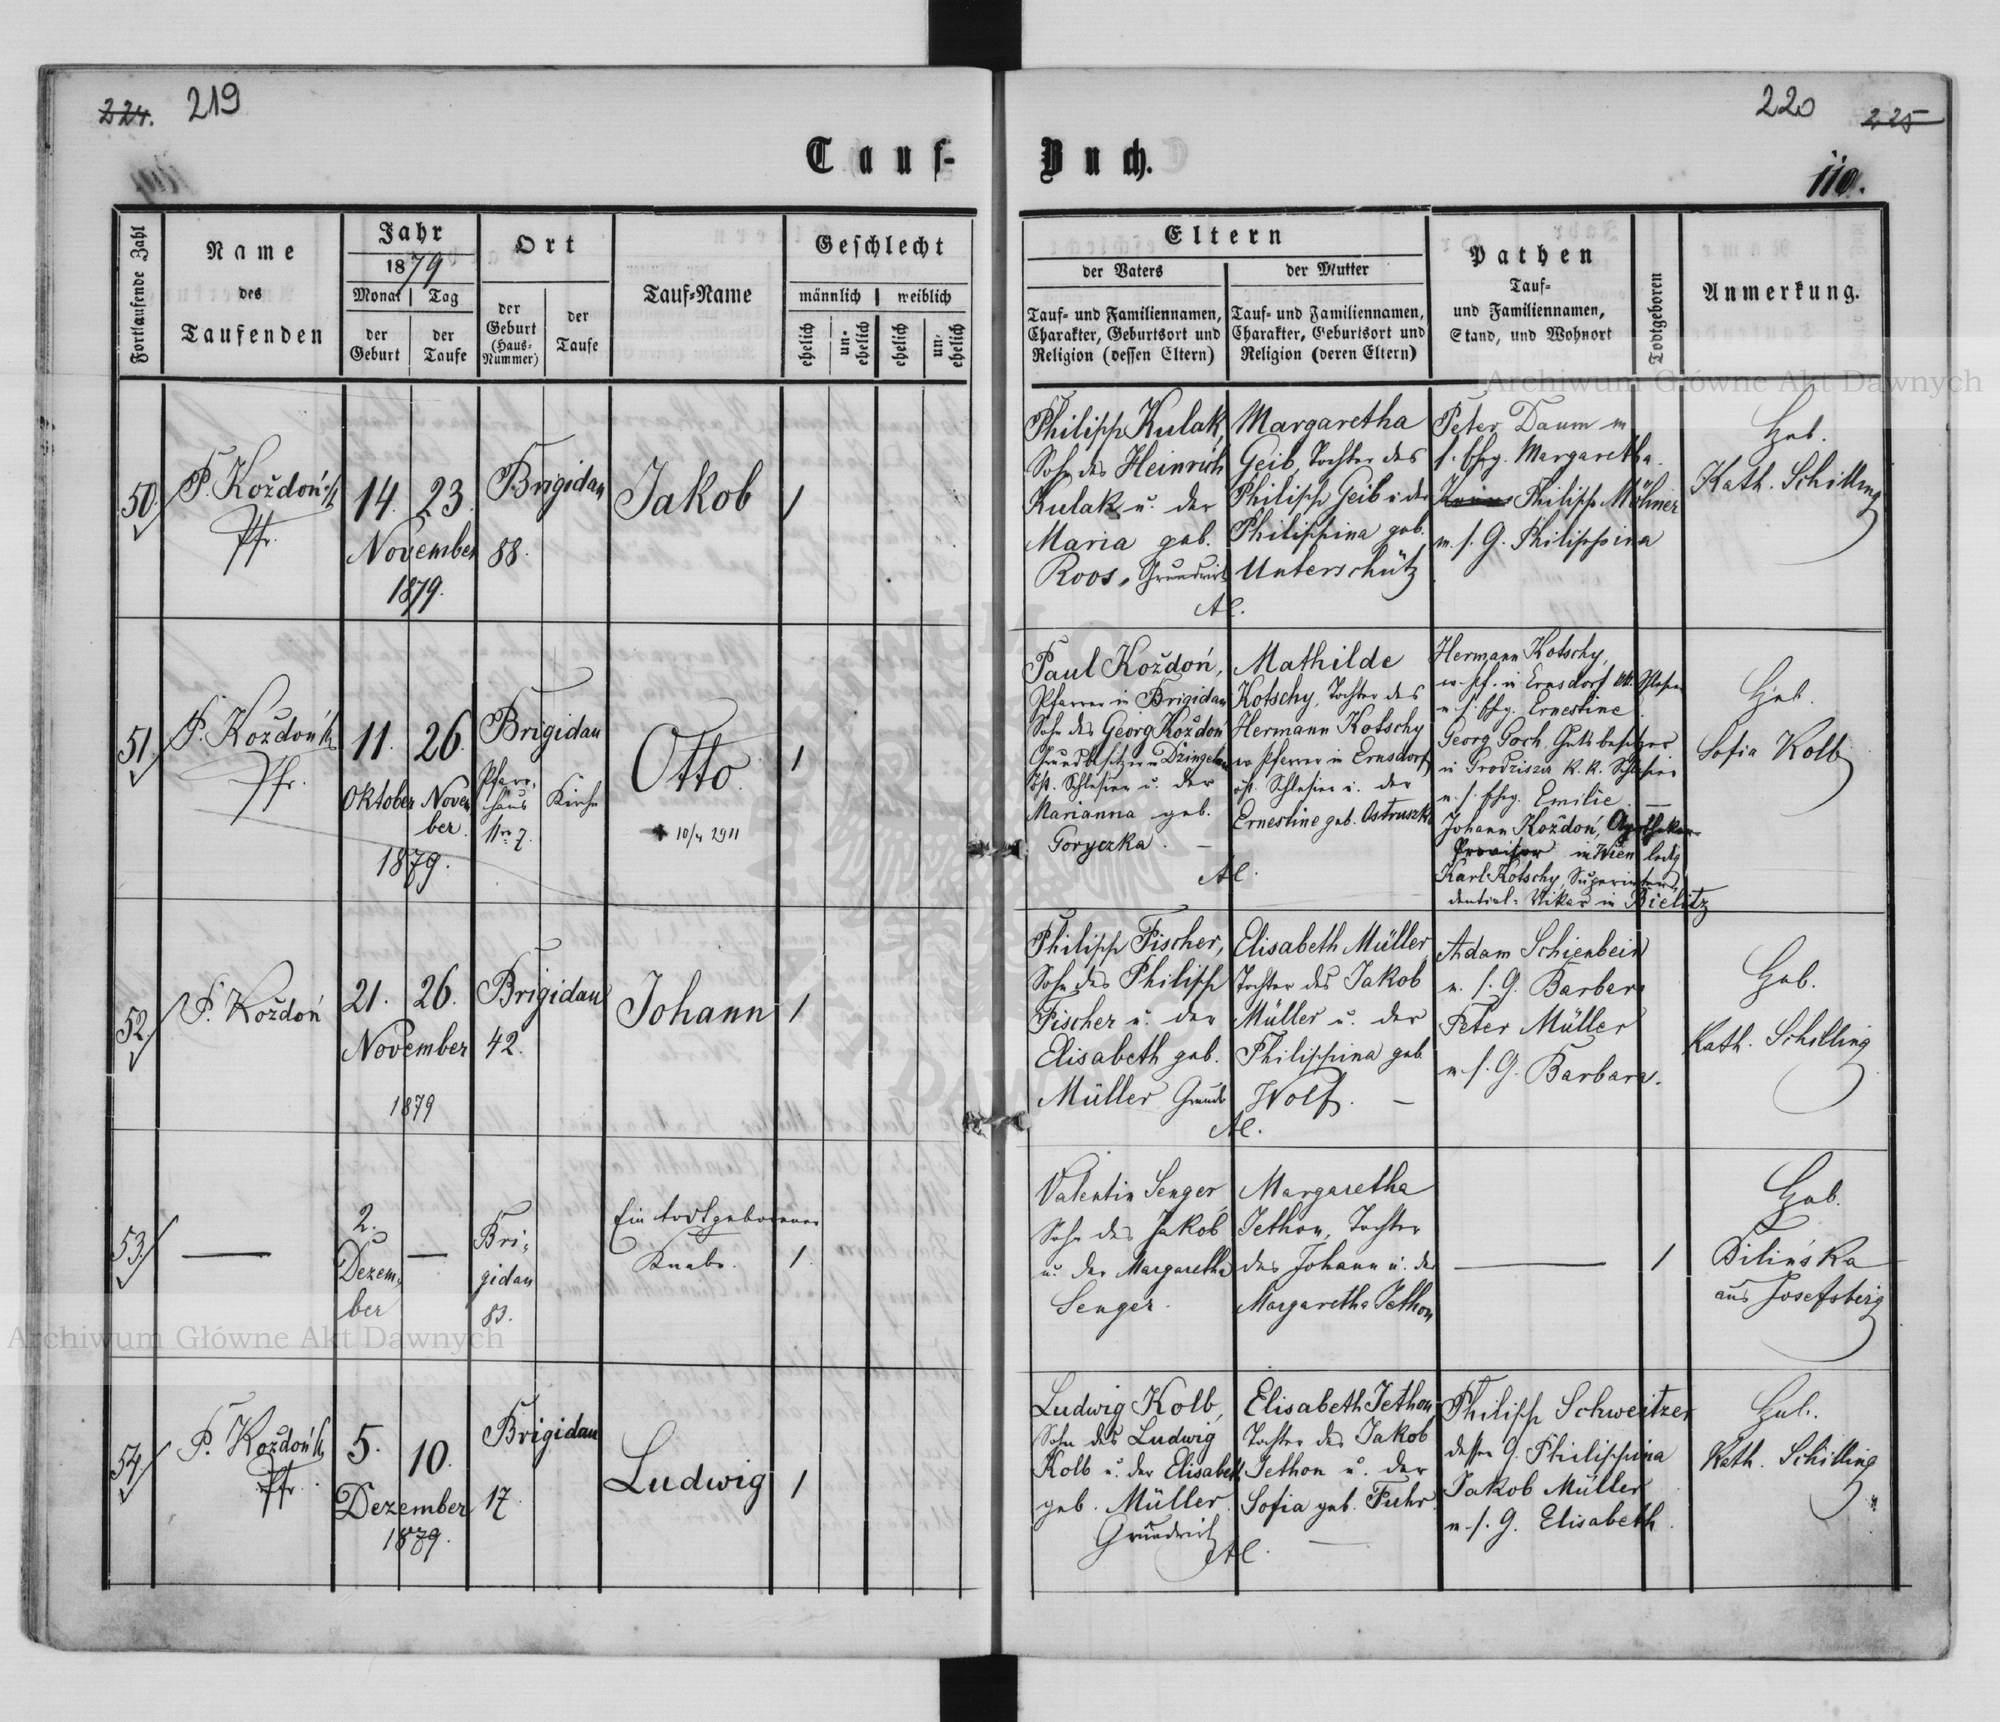 224. 219
220 225
Tauf-Buch.
110.
Fortlaufende Zahl
Name
des
Taufenden
Jahr
1879
Monat Tag
der Geburt
der Taufe
Ort
der Geburt (Haus-Nummer)
der Taufe
Tauf-Name
Geschlecht
männlich weiblich
ehelich
un-ehelich
ehelich
un-ehelich
Eltern
der Vaters
der Mutter
Tauf- und Familiennamen,
Charakter, Geburtsort und
Religion (dessen Eltern)
Tauf- und Familiennamen,
Charakter, Geburtsort und
Religion (deren Eltern)
Pathen
Tauf-
und Familiennamen,
Stand, und Wohnort
Todtgeboren
Anmerkung.
Archiwum Główne Akt Dawnych
50.
P. Koždoń
Pfr.
14. 23.
November
1879.
Brigidau
88.
Jakob
1
Philipp Kulak,
Sohn des Heinrich
Kulak u. der
Maria geb.
Roos, Grundwirt
Margaretha
Geib, Tochter des
Philipp Geib u. der
Philippina geb.
Unterschütz
AC.
Peter Daum
Margaretha.
Philipp Möhner
m. s. G. Philippina
Heb.
Kath. Schilling
51.
P. Koždoń
Pfr.
11. 26.
Oktober November.
1879.
Brigidau
Pfarrhaus
Nro 7.
Kirche
Otto
10/4 1911
1
Paul Koždoń,
Pfarrer in Brigidau
Sohn des Georg Koždoń
Grundbesitzer in
öst. Schlesien u. der
Marianna geb.
Goryczka.
Mathilde
Kotschy, Tochter des
Hermann Kotschy
ev. Pfarrer in Ernsdorf
öst. Schlesien u. der
Ernestine geb. Ostruszka
AC.
Hermann Kotschy,
ev. Pf. in Ernsdorf
Ernestine
Georg Goch, Gutsbesitzer
in Grodziszcz k. k. Schlesien
Emilie
Johann Koždoń, Apotheker
Provisor in Wien ledig
Karl Kotschy, Superinten-
dential-Vikar in Bielitz
Heb.
Sofia Kolb
52.
P. Koždoń
21. 26.
November
1879
Brigidau
42.
Johann
1
Philipp Fischer,
Sohn des Philipp
Fischer u. der
Elisabeth geb.
Müller
Elisabeth Müller,
Tochter des Jakob
Müller u. der
Philippina geb.
Wolf.
AC.
Adam Schienbein
m. s. G. Barbara
Peter Müller
m. s. G. Barbara.
Heb.
Kath. Schilling
53.
2.
Dezem-
ber
Bri-
gidau
83.
Ein todtgeborener
Knabe.
1.
Valentin Senger,
Sohn des Jakob
u. der Margaretha
Senger.
Margaretha
Jethon, Tochter
des Johann u. der
Margaretha Jethon
1
Heb.
Bilińska
aus Josefsberg
54.
P. Koždoń
Pfr.
5. 10.
Dezember
1879.
Brigidau
17.
Ludwig
1
Ludwig Kolb,
Sohn des Ludwig
Kolb u. der Elisabeth
geb. Müller.
Grundwirt
Elisabeth Jethon,
Tochter des Jakob
Jethon u. der
Sofia geb. Fuhr.
AC.
Philipp Schweitzer
dessen G. Philippina
Jakob Müller
m. s. G. Elisabeth.
Heb.
Kath. Schilling
Archiwum Główne Akt Dawnych